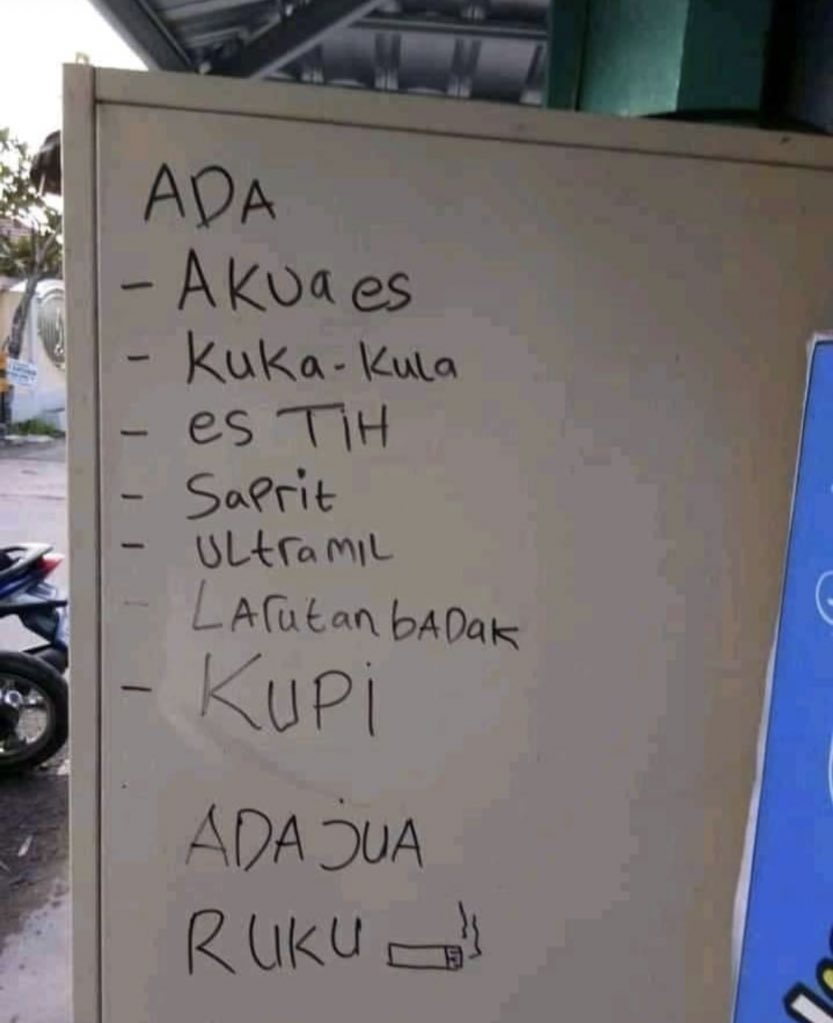 ADA
- AKUA es
- KUKA - KULA
- es TiH
- SaPrit
- ULtraMIL
- LArutan bADaK
- KUPi
ADA JUA
RUKU